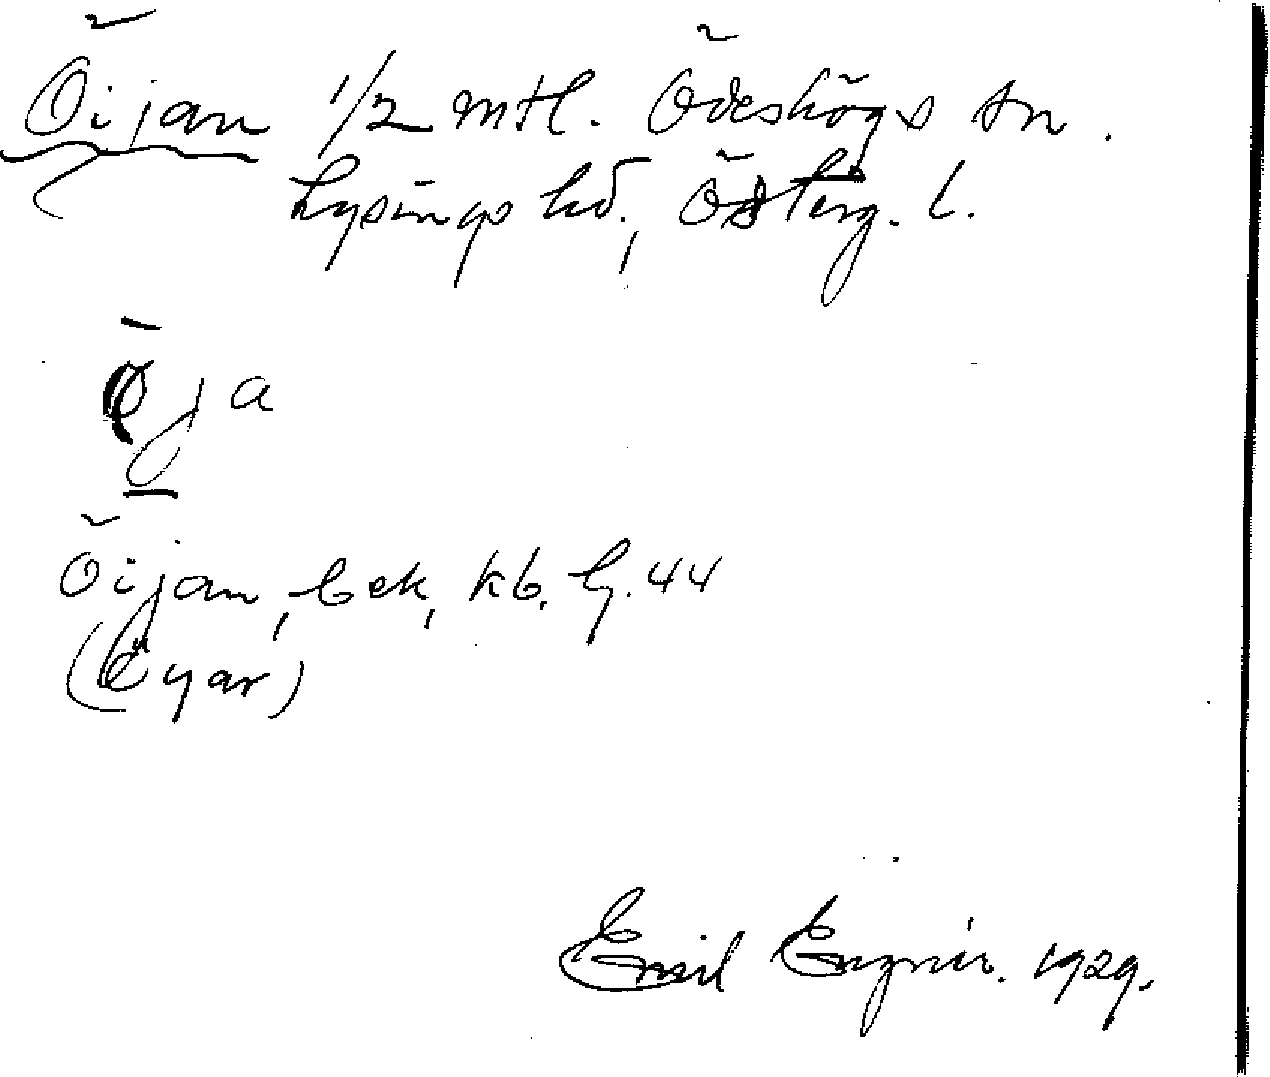 Öijan 1/2 mtl. Ödeshögs sn.
Lysings hd, Österg. l.
Öja
Öijan, bek, kb. h. 44
(Öyar)
Emil Engnér. 1929.